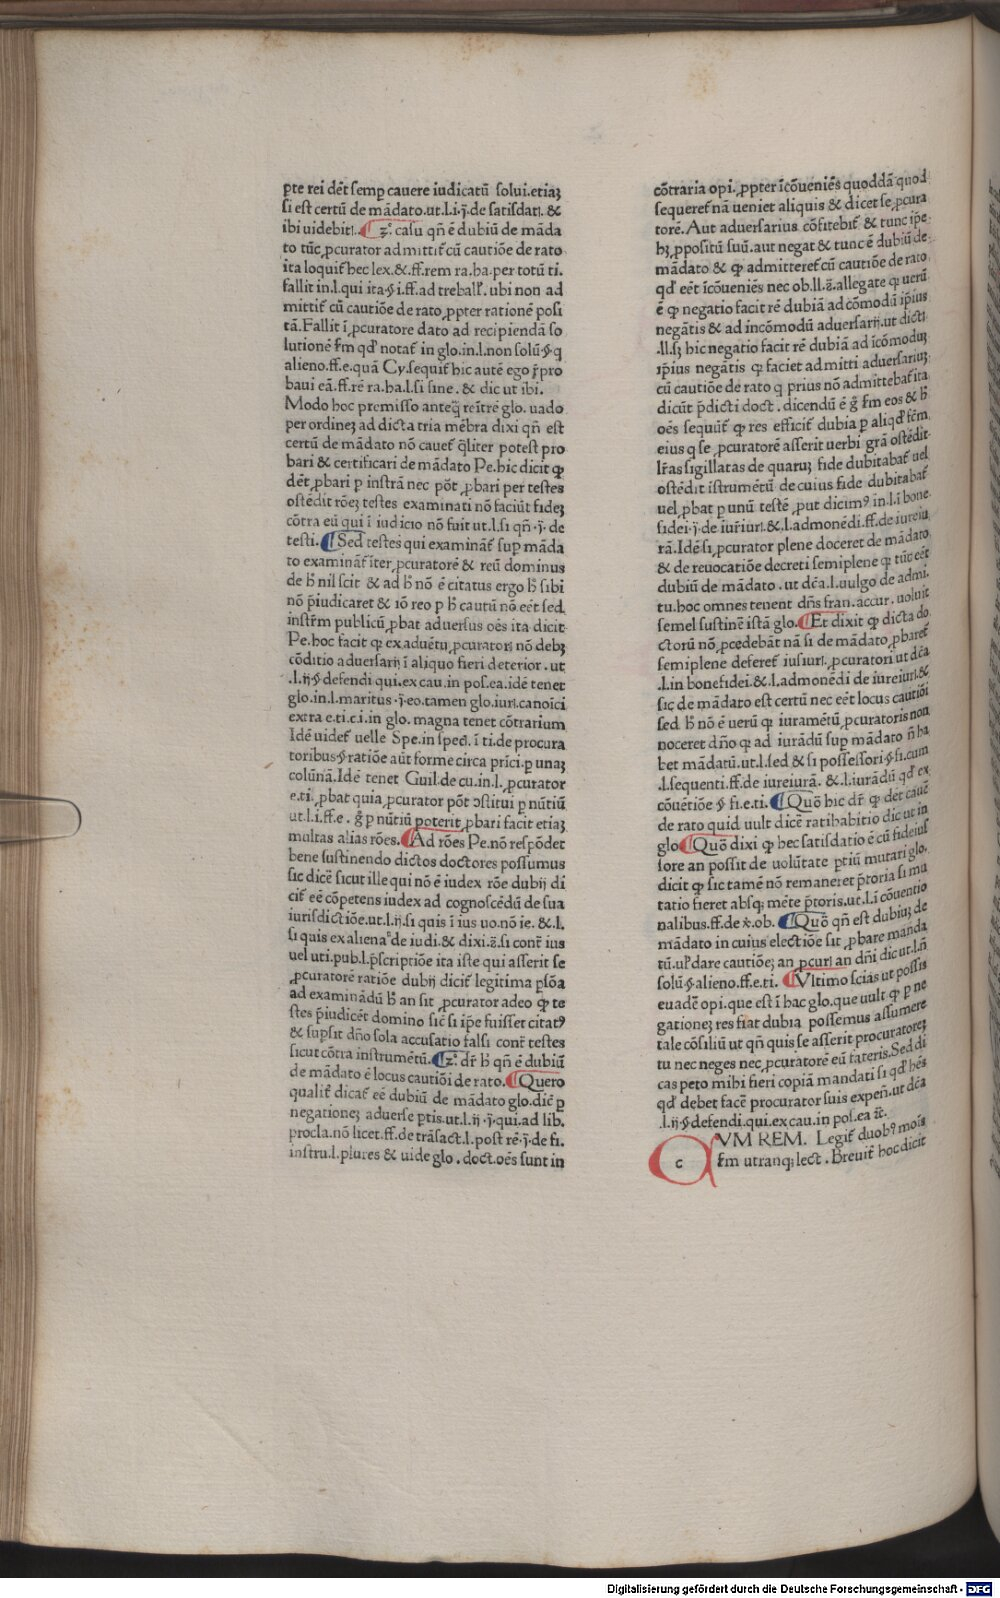 ꝑte rei dēt semꝑ cauere iudicatū solui.etiaꝫ
si est certū de mādato.ut.l.i.j̄.de satisdatꝭ. &
ibi uidebitꝭ.¶ ꝫ°. casu qn̄ ē dubiū de māda
to tūc ꝓcurator admittit̄ cū cautiōe de rato
ita loquit̄ hec lex.&.ff.rem ra.ha.per totū ti.
fallit in.l.qui ita.§ i.ff.ad treball̄. ubi non ad
mittit̄ cū cautiōe de rato ꝓpter rationē posi
tā.Fallit ī ꝓcuratore dato ad recipiendā so
lutionē fm̄ qd̄ notat̄ in glo.in.l.non solū.§ q
alieno.ff.e.quā Cy.sequit̄ hic autē ego īpro
baui eā.ff.rē ra.ha.l.si sine. & dic ut ibi.
Modo hoc premisso anteq̄ reītrē glo. uado
per ordineꝫ ad dicta tria mēbra dixi qn̄ est
certū de mādato nō cauet̄ q̄liter potest pro
bari & certificari de mādato Pe.hic dicit ꝙ
dēt ꝓbari ꝑ instrā nec pōt ꝓbari per testes
ostēdit rōeꝫ testes examinati nō faciūt fideꝫ
cōtra eū qui ī iudicio nō fuit ut.l.si qn̄.j̄. de
testi.¶ Sed testes qui examināt̄ suꝑ māda
to examināt̄ īter ꝓcuratorē & reū dominus
de h̄ nil scit & ad h̄ nō ē citatus ergo h̄ sibi
nō p̄iudicaret & iō reo ꝑ h̄ cautū nō eēt sed
instr̄m publicū ꝓbat aduersus oēs ita dicit
Pe.hoc facit ꝙ ex aduētu ꝓcuratorꝭ nō debꝫ
cōditio aduersarij ī aliquo fieri deterior. ut
.l.ij.§ defendi qui.ex cau.in pos.ea.idē tenet
glo.in.l.maritus.j̄.eo.tamen glo.iurꝭ.canoici
extra e.ti.c.i.in glo. magna tenet cōtrarium
Idē uidet̄ uelle Spe.in sped̄. ī ti.de procura
toribus.§ ratiōe aūt forme circa prīci.ꝑ unaꝫ
colūnā.Idē tenet Guil.de cu.in.l.ꝓcurator
e.ti.ꝓbat quia ꝓcurator pōt ↄstitui ꝑ nūtiū
ut.l.i.ff.e. ḡ ꝑ nūtiū poterit ꝓbari facit etiaꝫ
multas alias rōes.¶ Ad rōes Pe.nō respōdet
bene sustinendo dictos doctores possumus
sic dicē sicut ille qui nō ē iudex rōe dubij di
cit̄ eē cōpetens iudex ad cognoscēdū de sua
iurisdictiōe.ut.l.ij.si quis ī ius uo.nō ie. &.l.
si quis ex aliena°de iudi.& dixi.ē.si contr̄ ius
uel uti.pub.l.p̄scriptiōe ita iste qui asserit se
ꝓcuratorē ratiōe dubij dicit̄ legitima ꝑsōa
ad examinādū h̄ an sit ꝓcurator adeo ꝙ te
stes p̄iudicēt domino sic̄ si ip̄e fuisset citatꝰ
& suꝑsit dn̄o sola accusatio falsi contr̄ testes
sicut cōtra instrumētū.¶ ꝫ°. dr̄ h̄ qn̄ ē dubiū
de mādato ē locus cautiōi de rato.¶ Quero
qualit̄ dicat̄ eē dubiū de mādato glo.dic̄ ꝑ
negationeꝫ aduerse ꝑtis.ut.l.ij.j̄.qui.ad lib.
procla.nō licet.ff.de trāsact.l.post rē.j̄.de fi.
instru.l.plures & uide glo.doct.oēs sunt in
cōtraria opi.ꝓpter īcōueniēs quoddā quod
sequeret̄ nā ueniet aliquis & dicet se ꝓcura
torē.Aut aduersarius cōfitebit̄ & tunc ip̄e
hꝫ ꝓpositū suū.aut negat & tunc ē dubiū de
mādato & ꝙ admitteret̄ cū cautiōe de rato
qd̄ eēt īcōueniēs nec ob.ll.ā.allegate q̄ uerū
ē ꝙ negatio facit rē dubiā ad cōmodū ip̄ius
negātis & ad incōmodū aduersarij.ut dicti
.ll.sꝫ hic negatio facit rē dubiā ad īcōmoduꝫ
ip̄ius negātis ꝙ faciet admitti aduersariuꝫ
cū cautiōe de rato q prius nō admittebat̄ ita
dicūt p̄dicti doct. dicendū ē ḡ fm̄ eos & h̄
oēs sequūt̄ ꝙ res efficit̄ dubia ꝑ aliqd̄ fc̄m
eius q se ꝓcuratorē asserit uerbi grā ostēdit
lr̄as sigillatas de quaruꝫ fide dubitabat̄ uel
ostēdit īstrumētū de cuius fide dubitabat̄
uel ꝓbat ꝑ unū testē ꝓut dicimꝰ in.l.ī bone
fidei.j̄.de iur̄iurꝭ.&.l.admonēdi.ff.de iureiu
rā.Idē si ꝓcurator plene doceret de mādato
& de reuocatiōe decreti semiplene ꝙ tūc eēt
dubiū de mādato.ut dēa.l.uulgo de admi.
tu.hoc omnes tenent dn̄s fran.accur.uoluit
semel sustinē istā glo.¶ Et dixit ꝙ dicta do
ctorū nō ꝓcedebāt nā si de mādato ꝓbaret̄
semiplene deferet̄ iusiurꝭ.ꝓcuratori ut dēa
.l.in bonefidei.&.l.admonēdi de iureiurꝭ.&
sic de mādato est certū nec eēt locus cautiōi
sed h̄ nō ē uerū ꝙ iuramētū ꝓcuratoris non
noceret dn̄o ꝙ ad iurādū suꝑ mādato n̄ ha
bet mādatū.ut.l.sed & si possessori.§ fi.cum
.l.sequenti.ff.de iureiurā. &.l.iurādū qd̄ ex
cōuētiōe § fi.e.ti.¶ Quō hic dr̄ ꝙ dēt cauē
de rato quid uult dicē ratihabitio dic ut in
glo¶ Quō dixi ꝙ hec satisdatio ē cū fideius
sore an possit de uolūtate ꝑtiū mutari glo.
dicit ꝙ sic tamē nō remaneret p̄toria si mu
tatio fieret absqꝫ mēte p̄toris.ut.l.ī cōuentio
nalibus.ff.de x̄.ob. ¶ Quō qn̄ est dubiuꝫ de
mādato in cuius electiōe sit ꝓbare manda
tū.ul̄ dare cautiōeꝫ an ꝓcurꝭ an dn̄i dic ut.l.n̄
solū.§ alieno.ff.e.ti. ¶ Vltimo scias ut possis
euadē opi.que est ī hac glo.que uult ꝙ ꝑ ne
gationeꝫ res fiat dubia possemus assumere
tale cōsiliū ut qn̄ quis se asserit procuratoreꝫ
tu nec neges nec ꝓcuratorē eū fateris.Sed di
cas peto mihi fieri copiā mandati si qd̄ hēs
qd̄ debet facē procurator suis expen̄.ut dēa
.l.ij.§ defendi.qui.ex cau.in pos.ea ⁊c̄.
c VM REM. Legit̄ duobꝰ mōis
fm̄ utranqꝫ lect. Breuit̄ hoc dicit
Digitalisierung gefördert durch die Deutsche Forschungsgemeinschaft - DFG